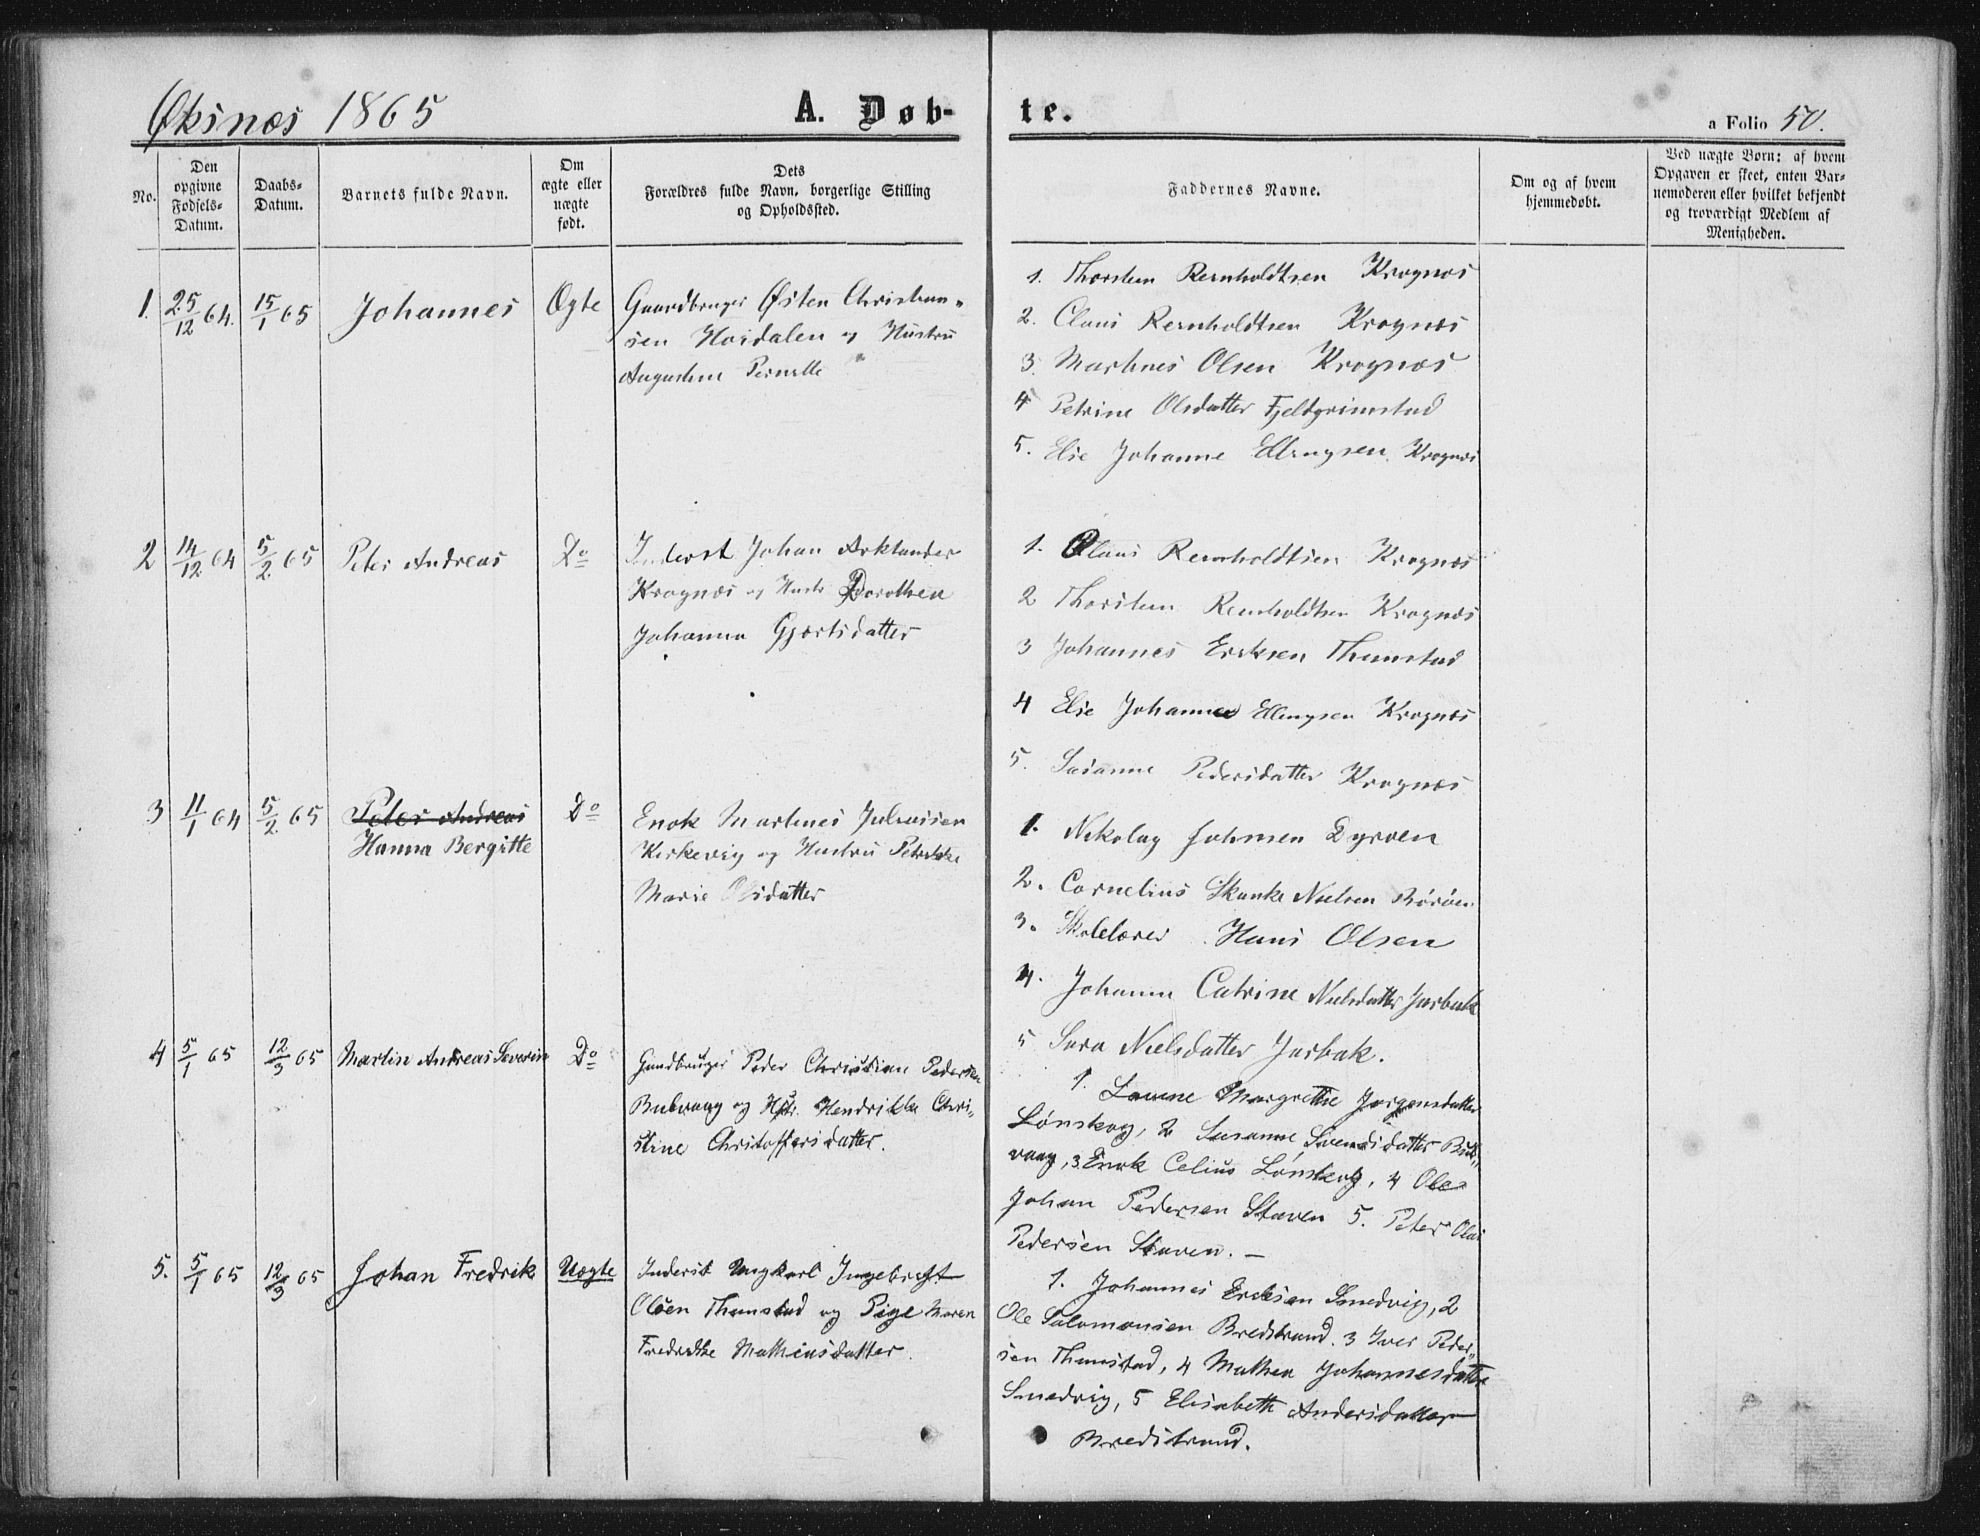 Øksnæs 1865
A. Døb-
te.
a Folio 50.
No.
Den
opgivne
Fødsels-
Datum.
Daabs-
Datum.
Barnets fulde Navn.
Om
ægte eller
uægte
født.
Dets
Forældres fulde Navn, borgerlige Stilling
og Opholdssted.
Faddernes Navne.
Om og af hvem
hjemmedøbt.
Ved uægte Børn: af hvem
Opgaven er skeet, enten Bar-
nemoderen eller hvilket bekjendt
og troværdigt Medlem af
Menigheden.
1. 25/12 64. 15/1 65 Johannes Ægte
Gaardbruger Østen Christian-
sen Høidalen og Hustru
Augustine Pernille
1. Thorsten Reinholdtsen Kragnæs
2. Claus Reinholdtsen Kragnæs
3. Martines Olsen Kragnæs
4 Petrine Olsdatter Fjeldgrimstad
5. Else Johanne Ellingsen Kragnæs
2 14/12 64 5/2 65 Peter Andreas Do
Inderst Johan Arktander
Kragnæs og Hustr Dorothea
Johanna Gjertsdatter
1. Claus Reinholdtsen Kragnæs
2 Thorsten Reinholdtsen Kragnæs
3 Johannes Eriksen Thunstad
4 Else Johannes Ellingsen Kragnæs
5. Susanne Pedersdatter Kragnæs
3 11/1 64 5/2 65 Peter Andreas Do
Hanna Bergitte
Enok Martines Juliussen
Kirkevig og Hustru Petrikke
Marie Olsdatter
1. Nikolay Johnsen Dyrøen
2. Cornelius Skanke Nielsen Børøen
3. Skolelærer Hans Olsen
4. Johanna Catrine Nielsdatter Jorbak
5 Sara Nielsdatter Jorbak.
4 5/1 65 12/3 65 Martin Andreas Severin Do
Gaardbruger Peder Christian Pedersen
Bubvaag og Hstr. Hendrikke Chri-
stine Christoffersdatter.
1. Lovine Margrethe Jørgensdatter
Lønskog, 2 Susanne Svendsdatter Bub-
vaag, 3. Enok Celius Lønskog, 4 Ole
Johan Pedersen Staven 5. Peter Olai
Pedersen Staven. —
5. 5/1 65 12/3 65 Johan Fredrik Uægte
Inderst Ungkarl Ingebrigt
Olsen Thunstad og Pige Maren
Fredrikke Mathiasdatter.
1. Johannes Eriksen Smedvig, 2
Ole Salomonsen Bredstrand. 3 Iver Peder-
sen Thunstad, 4 Mathea Johannesdatter
Smedvig, 5 Elisabeth Andersdatter
Bredstrand.